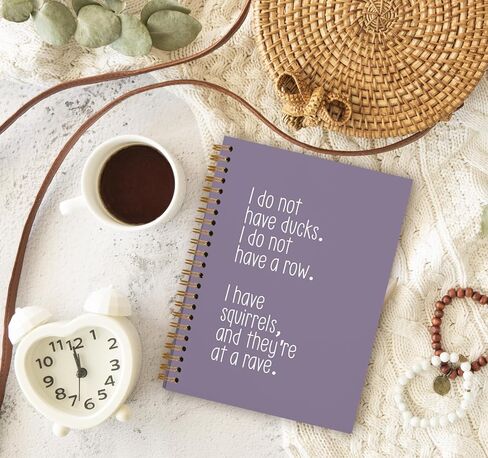 I do not
have ducks.
I do not
have a row.
I have
squirrels,
and they're
at a rave.
12
1
2
3
4
5
6
7
8
9
10
11